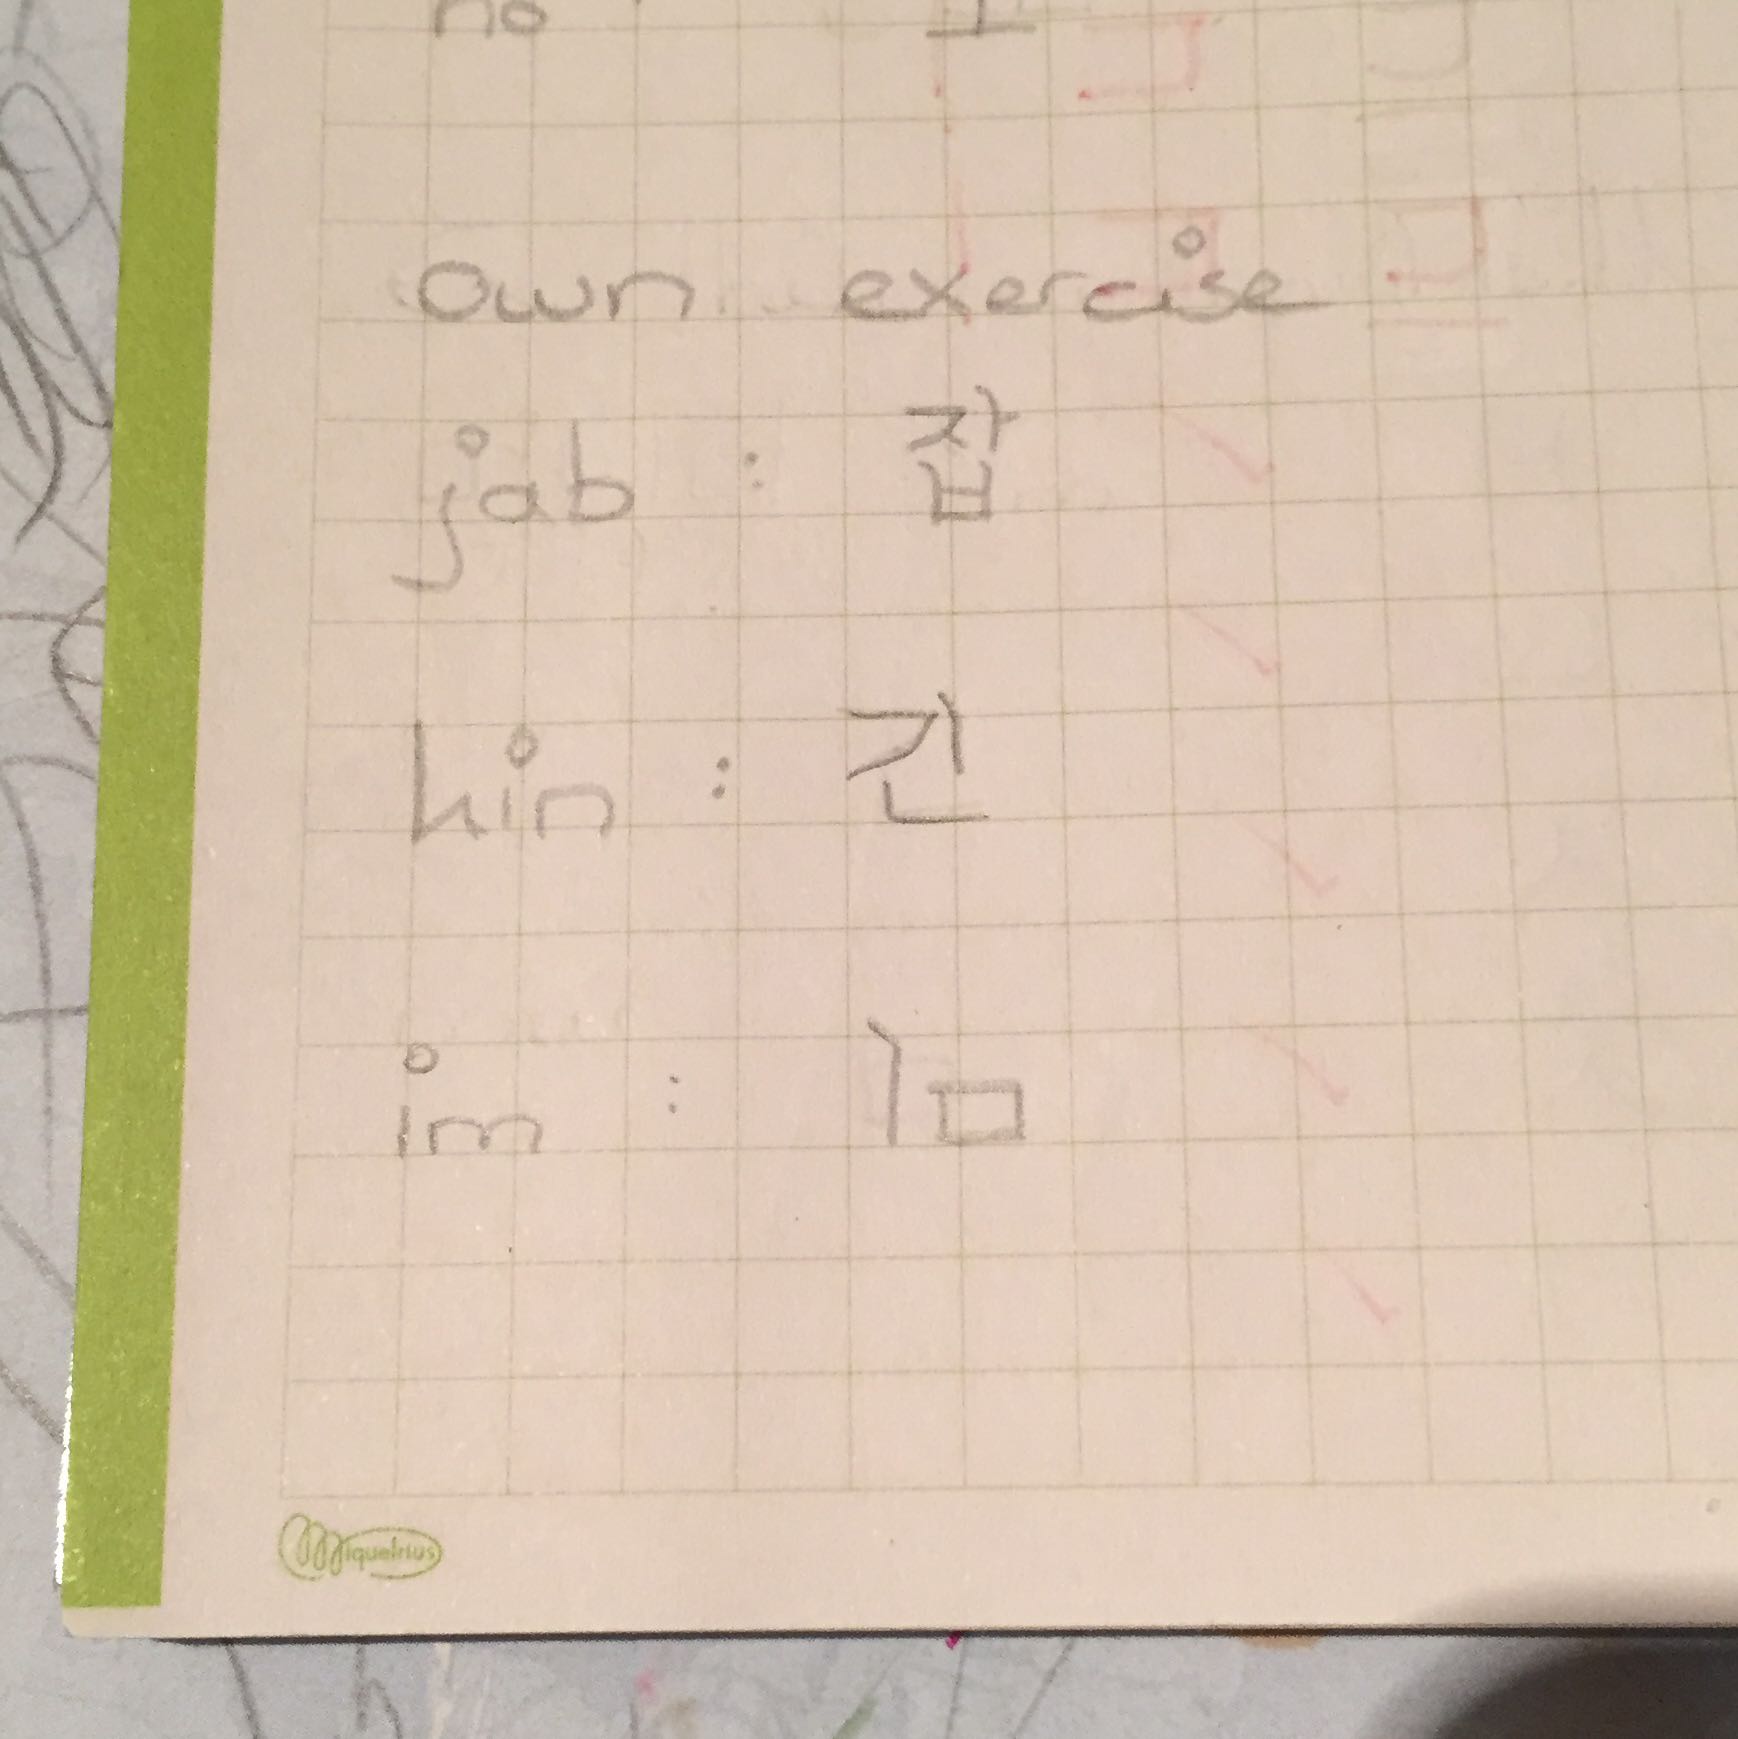 no
own exercise
jab : 잡
hin : 긴
im : ㅣㅁ
Miquelrius